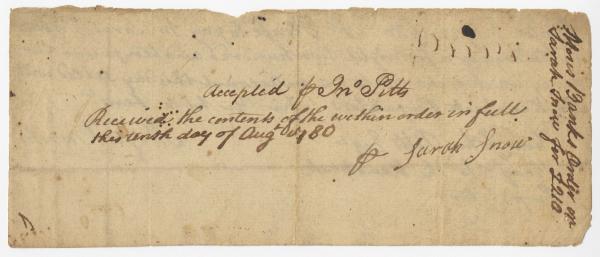 accepted ⅌ Jnº Pitts
Received the contents of the within order in full
this tenth day of Augt 1780
⅌ Sarah Snow
Mons Banks Order on
Sarah Snow for £210